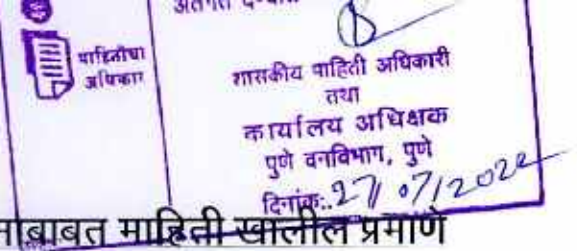 माहितीचा
अधिकार
अंतर्गत
शासकीय माहिती अधिकारी
तथा
कार्यालय अधिक्षक
पुणे वनविभाग, पुणे
दिनांक:. 27/07/2022
माहिती खालील प्रमाणे